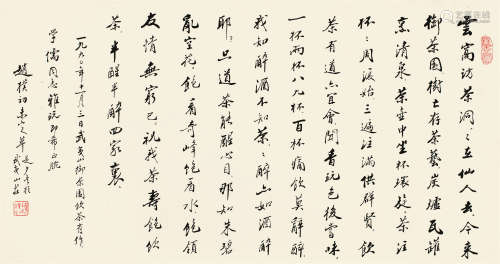 雲窩訪茶洞々在仙人去今来
御茶園樹亡存茶藝炭爐瓦罐
烹清泉茶壺中坐杯環旋茶注
杯々周復始三遍注滿供群賢飲
茶有道亦宜會聞香玩色後嘗味
一杯兩杯八九杯百杯痛飲莫辭醉
我知醉酒不知茶々醉亦如酒醉
耶只道茶能醒心目那知朱碧
亂空花飽看奇峰飽看水飽領
友情無窮已祝我茶壽飽飲
茶半醒半醉回家裏
一九九〇年十一月三日武夷山御茶園飲茶有作
学儒同志雅玩即希正腕
趙樸初未定草
武夷山莊